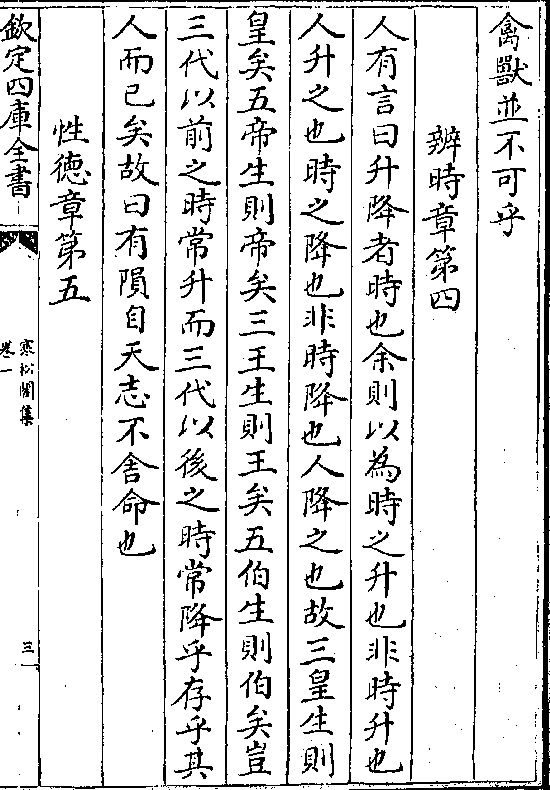 禽獸並不可乎
辨時章第四
人有言曰升降者時也余則以為時之升也非時升也
人升之也時之降也非時降也人降之也故三皇生則
皇矣五帝生則帝矣三王生則王矣五伯生則伯矣豈
三代以前之時常升而三代以後之時常降乎存乎其
人而已矣故曰有隕自天志不舍命也
性德章第五
欽定四庫全書
寒松閣集
卷一
三